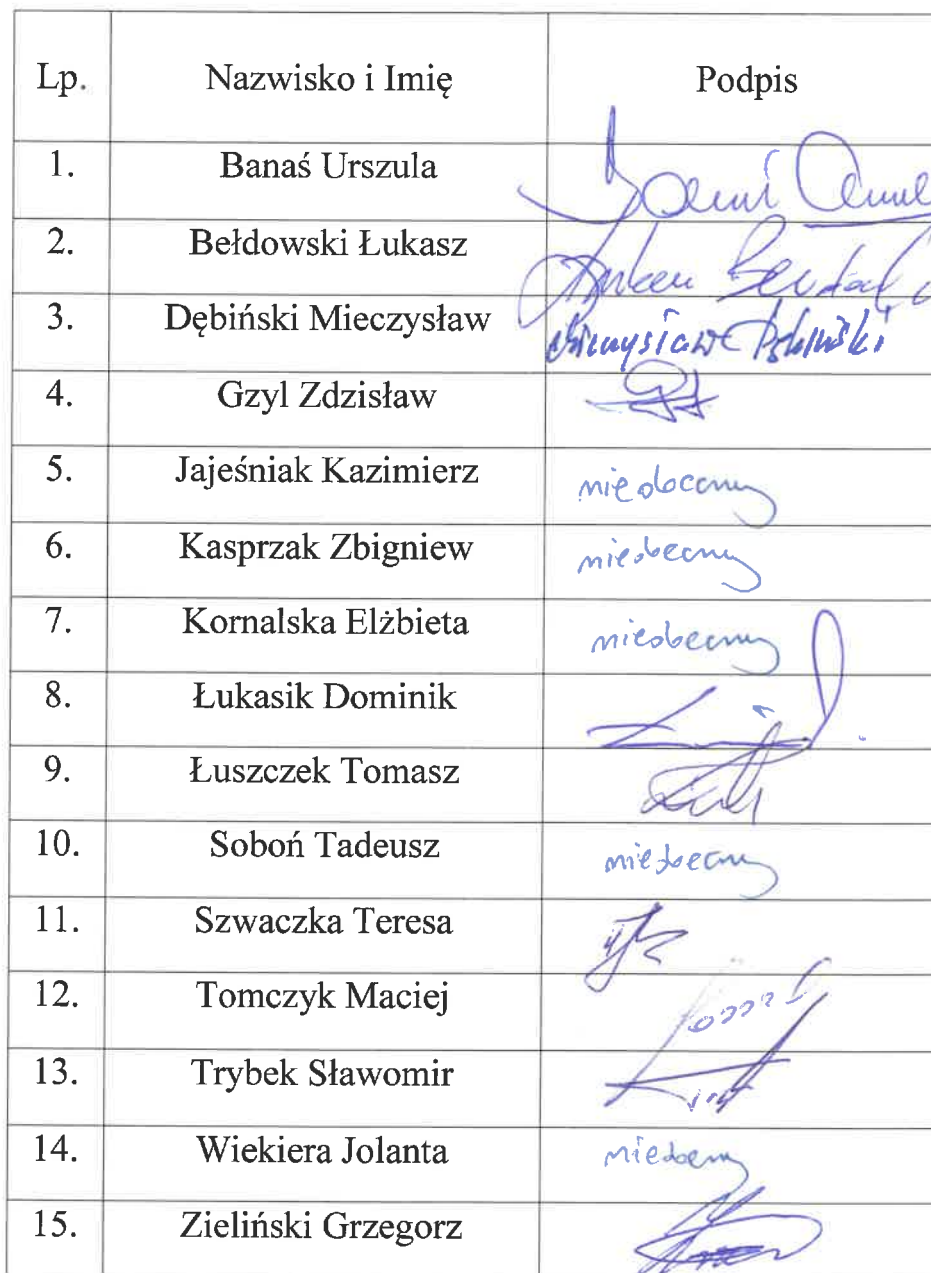 Lp. Nazwisko i Imię Podpis
1. Banaś Urszula
2. Bełdowski Łukasz
3. Dębiński Mieczysław
4. Gzyl Zdzisław
5. Jajeśniak Kazimierz nieobecny
6. Kasprzak Zbigniew nieobecny
7. Kornalska Elżbieta nieobecny
8. Łukasik Dominik
9. Łuszczek Tomasz
10. Soboń Tadeusz nieobecny
11. Szwaczka Teresa
12. Tomczyk Maciej
13. Trybek Sławomir
14. Wiekiera Jolanta nieobecny
15. Zieliński Grzegorz